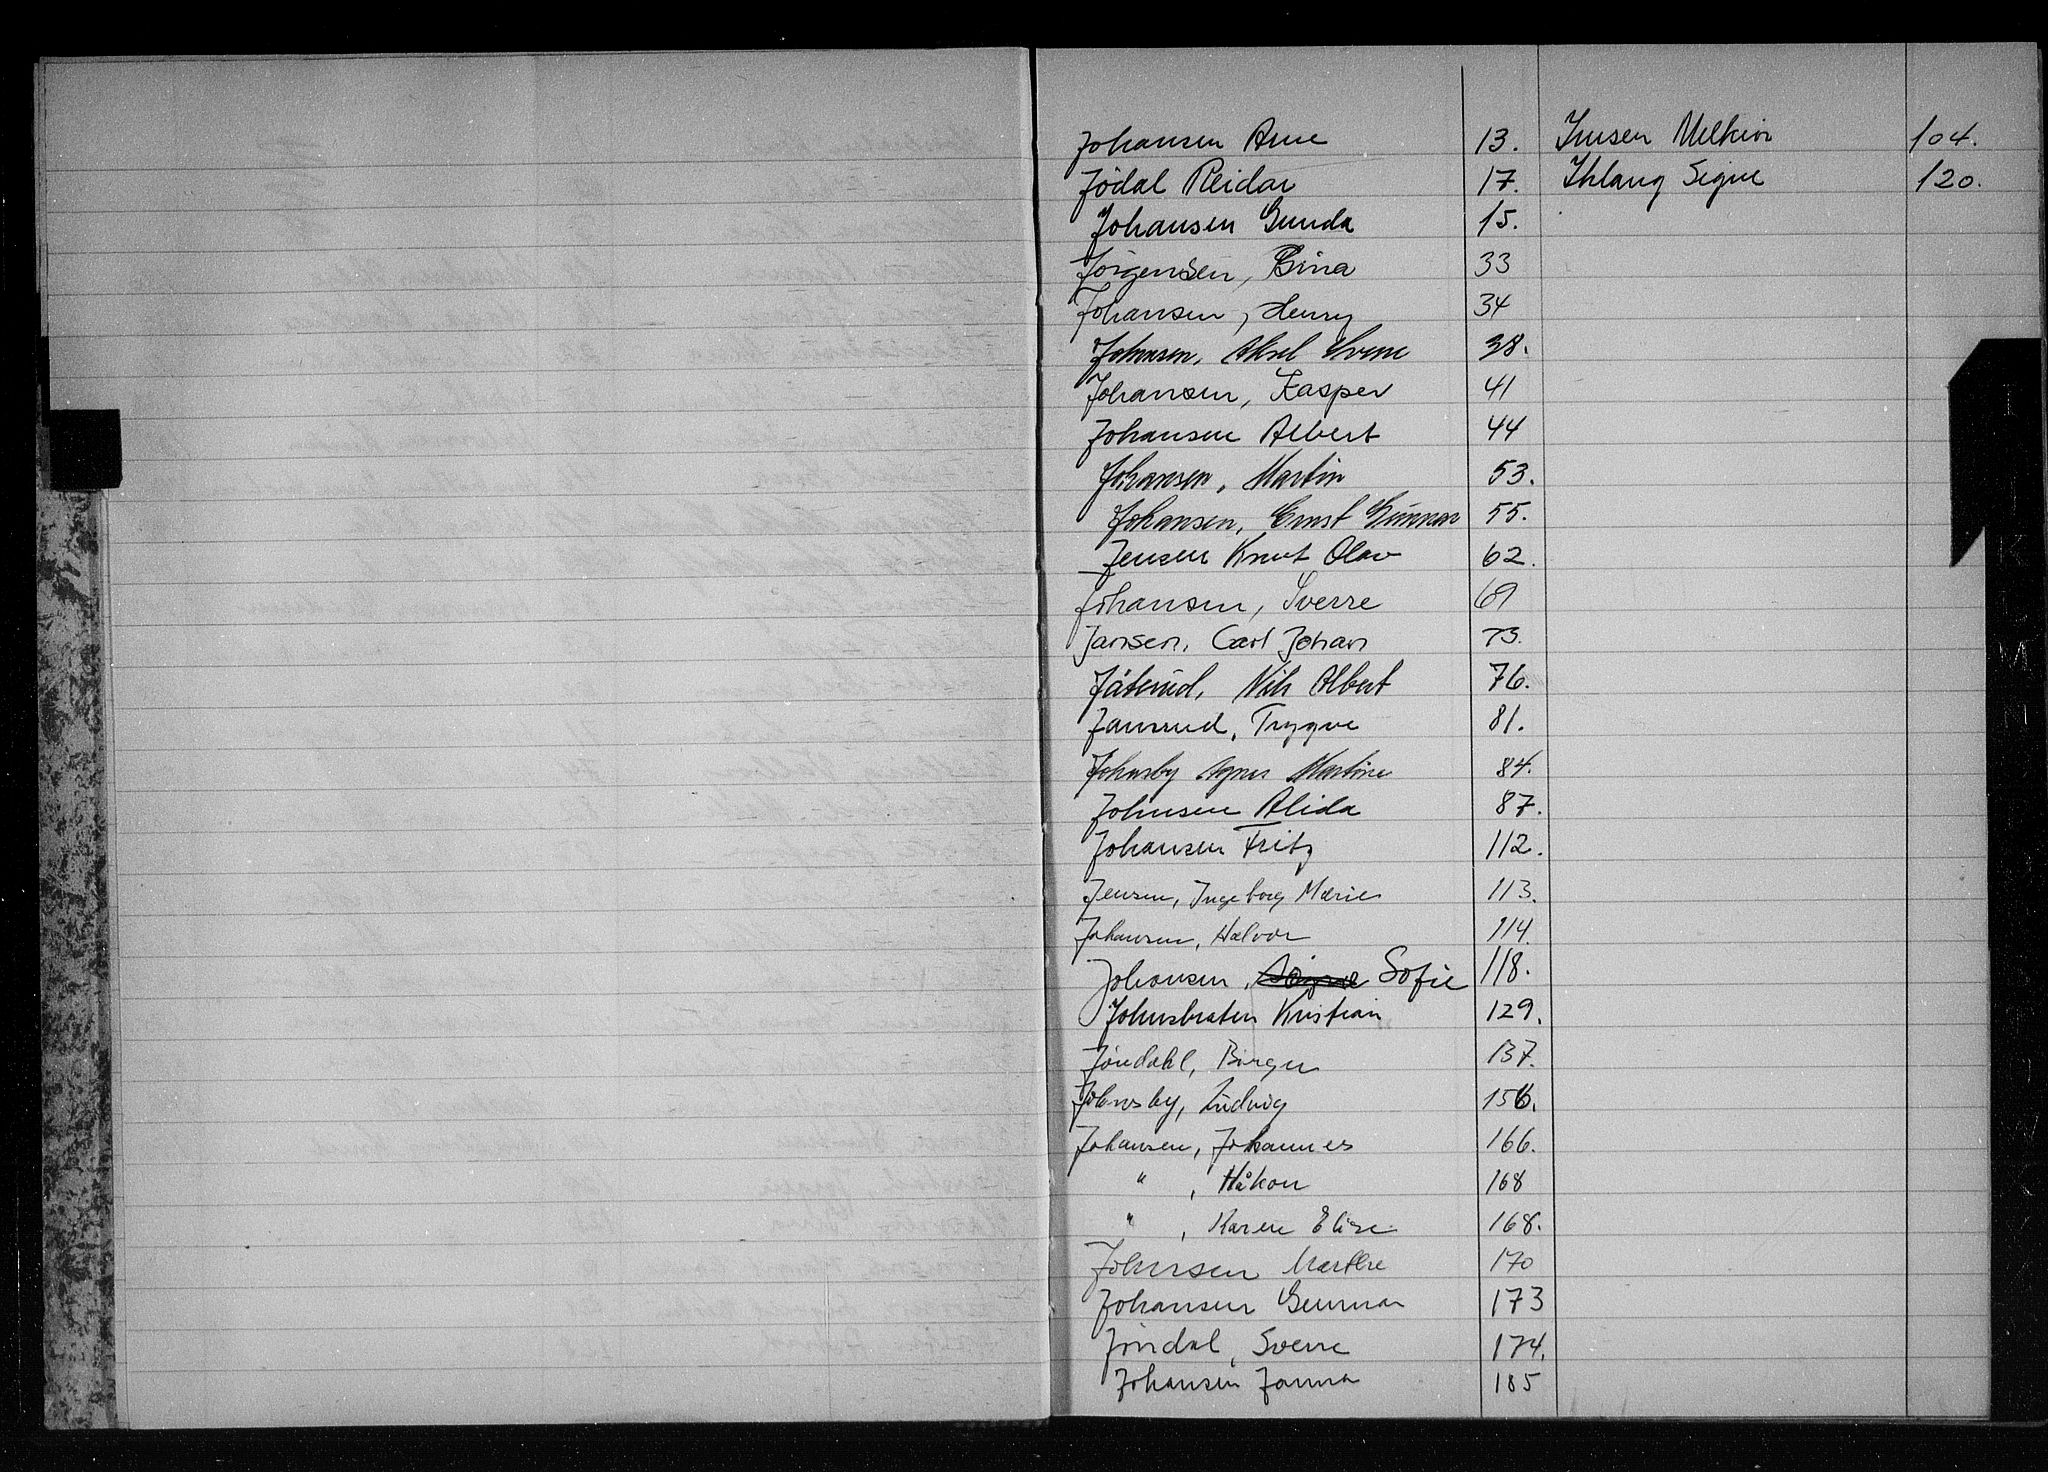 Johansen Arne 13. Imsen Melkior 104.
Jødal Reidar 17. Ihlang Signe 120.
Johansen Gunda 15.
Jørgensen, Bina 33
Johansen, Henry 34
Johnsen, Aksel Svene 38.
Johansen, Kasper 41
Johansen Albert 44
Johansen, Martin 53.
Johansen, Ernst Gunnar 55.
Jensen Knut Olav 62.
Johansen, Sverre 69
Jansen, Carl Johan 73.
Jåterud, Nils Albert 76.
Jansrud, Trygve 81.
Johnsby Agnes Martine 84.
Johnsen Alida 87.
Johansen Fritz 112.
Jensen, Ingeborg Marie 113.
Johansen, Halvor 114.
Johansen, Sofie 118.
Johnsbraten Kristian 129.
Jøndahl, Birger 137.
Johnsby, Ludvig 156.
Johansen, Johannes 166.
" , Håkon 168
" , Karen Elise 168.
Johnsen Marthe 170
Johansen Gunnar 173
Jøndal, Sverre 174.
Johansen Janna 185